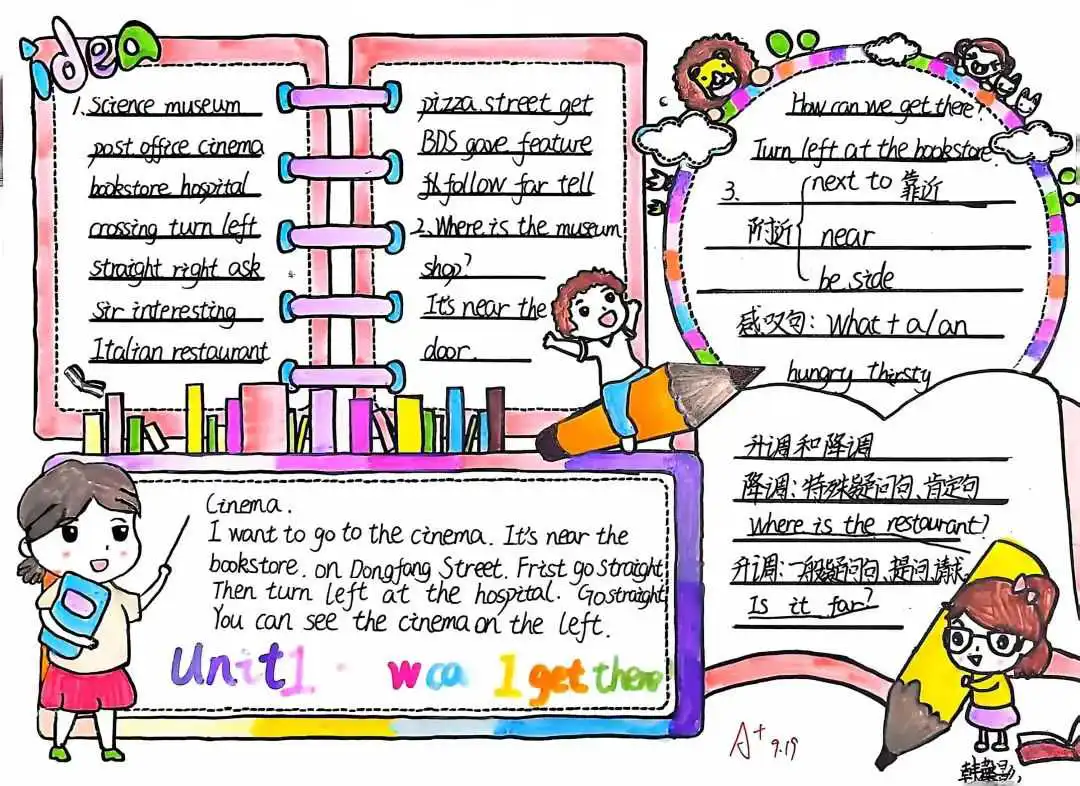 idea
1. Science museum
post office cinema
bookstore hospital
crossing turn left
straight right ask
sir interesting
Italian restaurant
pizza street get
gave feature
follow far tell
2. Where is the museum
shop?
It's near the
door.
How can we get there?
Turn left at the bookstore.
3.
next to 靠近
附近
near
be side
感叹句: What + a/an
hungry thirsty
升调和降调
降调: 特殊疑问句、肯定句
Where is the restaurant?
升调: 一般疑问句、提问、请求
Is it far?
Cinema.
I want to go to the cinema. It's near the
bookstore. on Dongfang Street. Frist go straight
Then turn left at the hospital. Go straight
You can see the cinema on the left.
Unit1 w ca I get there
A+ 9.19